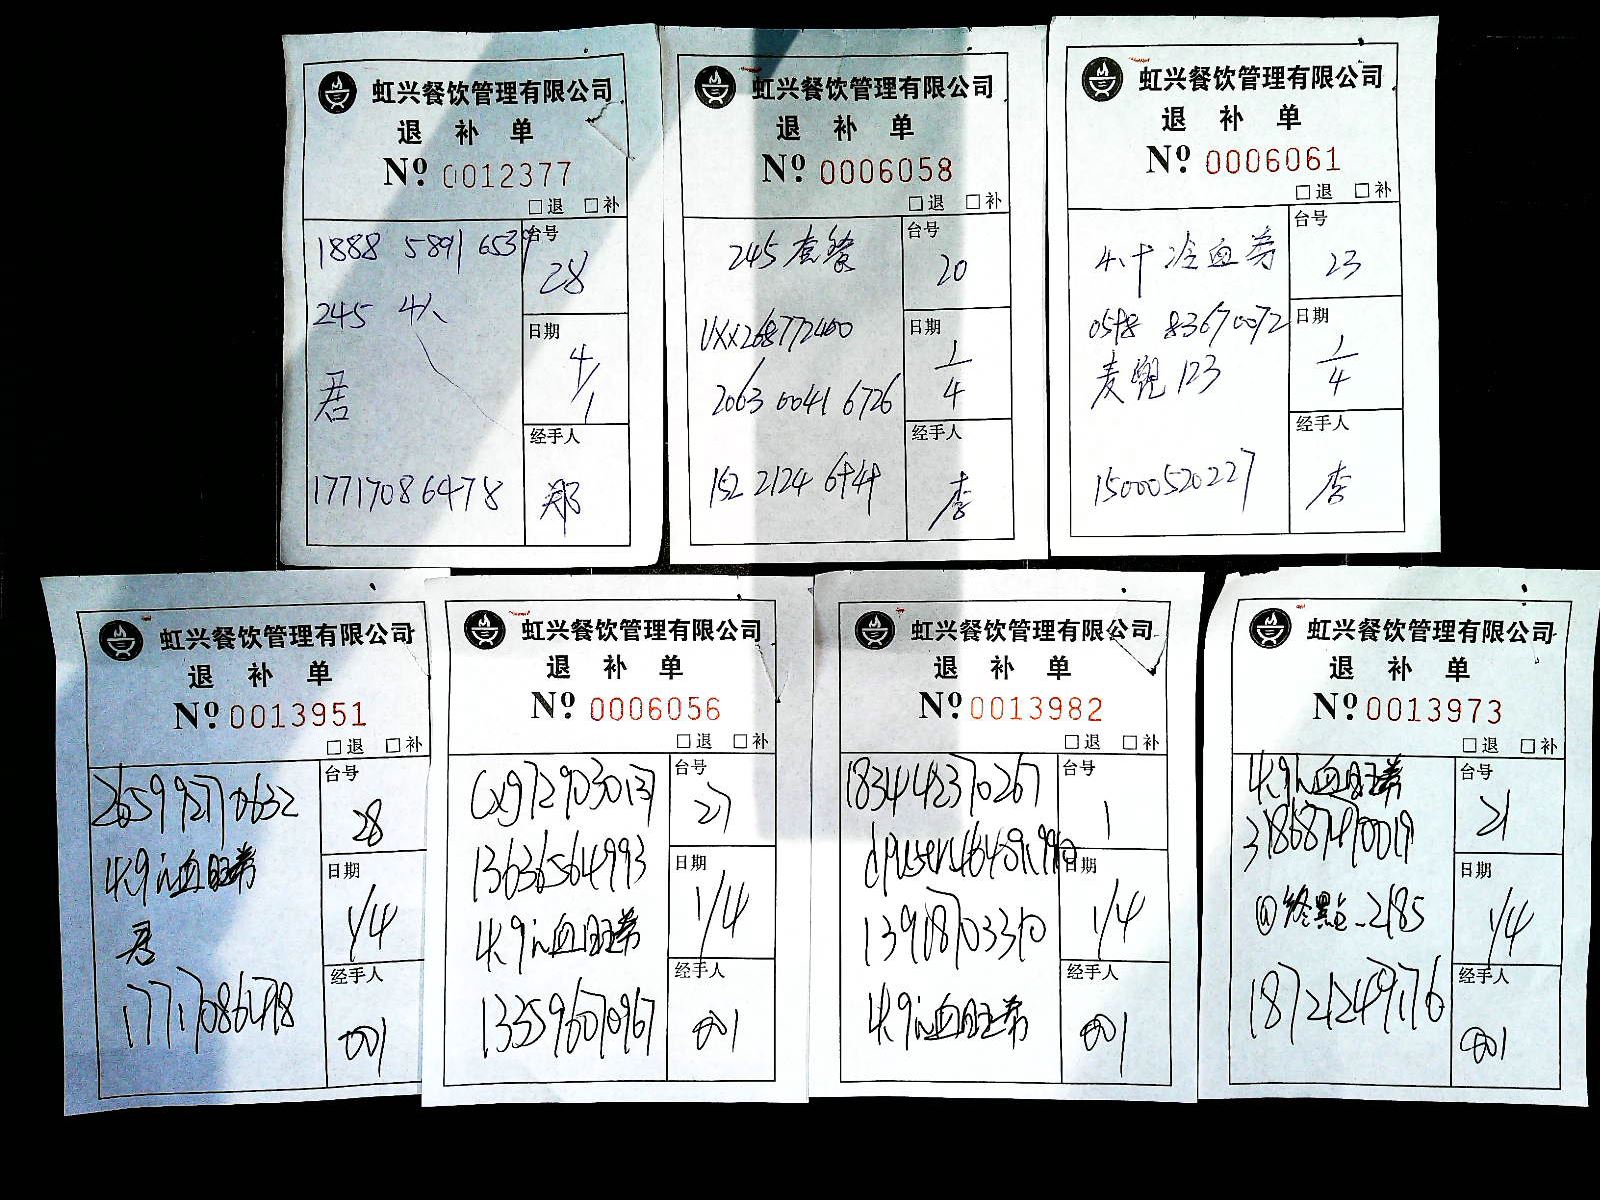 虹兴餐饮管理有限公司
退 补 单
Nº 0012377
□退 □补
1888 5891 6539
245 4人
君
17717086478
台号
28
日期
4/1
经手人
郑
虹兴餐饮管理有限公司
退 补 单
Nº 0006058
□退 □补
245 套餐
2063 0041 6726
152 2124
台号
20
日期
1/4
经手人
李
虹兴餐饮管理有限公司
退 补 单
Nº 0006061
□退 □补
血
8367 0072
麦 123
15000520227
台号
23
日期
1/4
经手人
李
虹兴餐饮管理有限公司
退 补 单
Nº 0013951
□退 □补
2659 9270632
4.9 血旺券
君
17717086478
台号
28
日期
1/4
经手人
001
虹兴餐饮管理有限公司
退 补 单
Nº 0006056
□退 □补
13636564993
4.9 血旺券
台号
27
日期
1/4
经手人
001
虹兴餐饮管理有限公司
退 补 单
Nº 0013982
□退 □补
183442370267
13918703310
4.9 血旺券
台号
1
日期
1/4
经手人
001
虹兴餐饮管理有限公司
退 补 单
Nº 0013973
□退 □补
4.9 血旺券
@终点-2185
18721249176
台号
21
日期
1/4
经手人
001